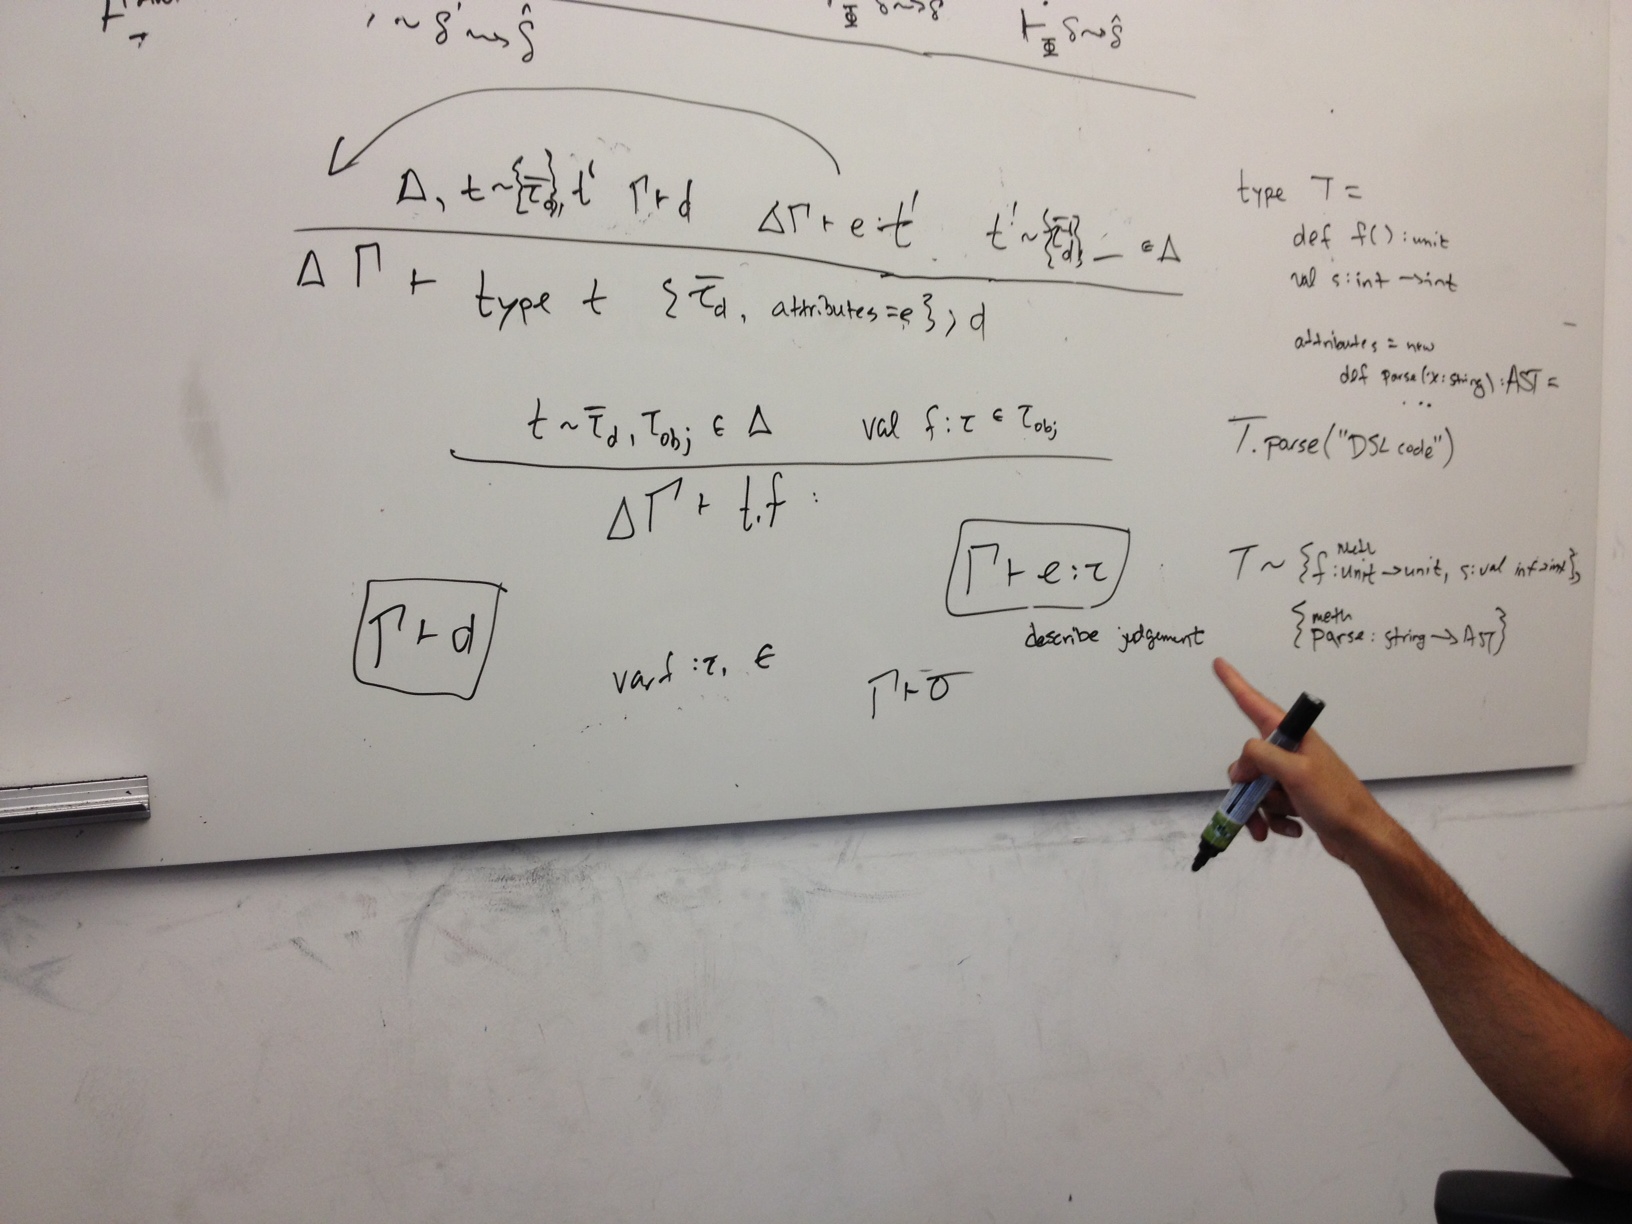 ~ δ' ⇝ δ̂
⊢Φ δ ⇝ δ̂
Δ, t ~ {τ̄d}, t' Γ ⊢ d    ΔΓ ⊢ e : t'    t' ~ {τ̄d} _ ∈ Δ
Δ Γ ⊢ type t {τ̄d, attributes = e}; d
t ~ τ̄d, τobj ∈ Δ    val f : τ ∈ τobj
ΔΓ ⊢ t.f :
Γ ⊢ d
var f : τ, ∈
Γ ⊢ e : τ
describe judgement
Γ ⊢ σ̄
type T =
def f() : unit
val s : int → int
attributes = new
def parse(x : string) : AST =
...
T.parse("DSL code")
T ~ {f : meth unit → unit, s : val int → int},
{meth
parse : string → AST}